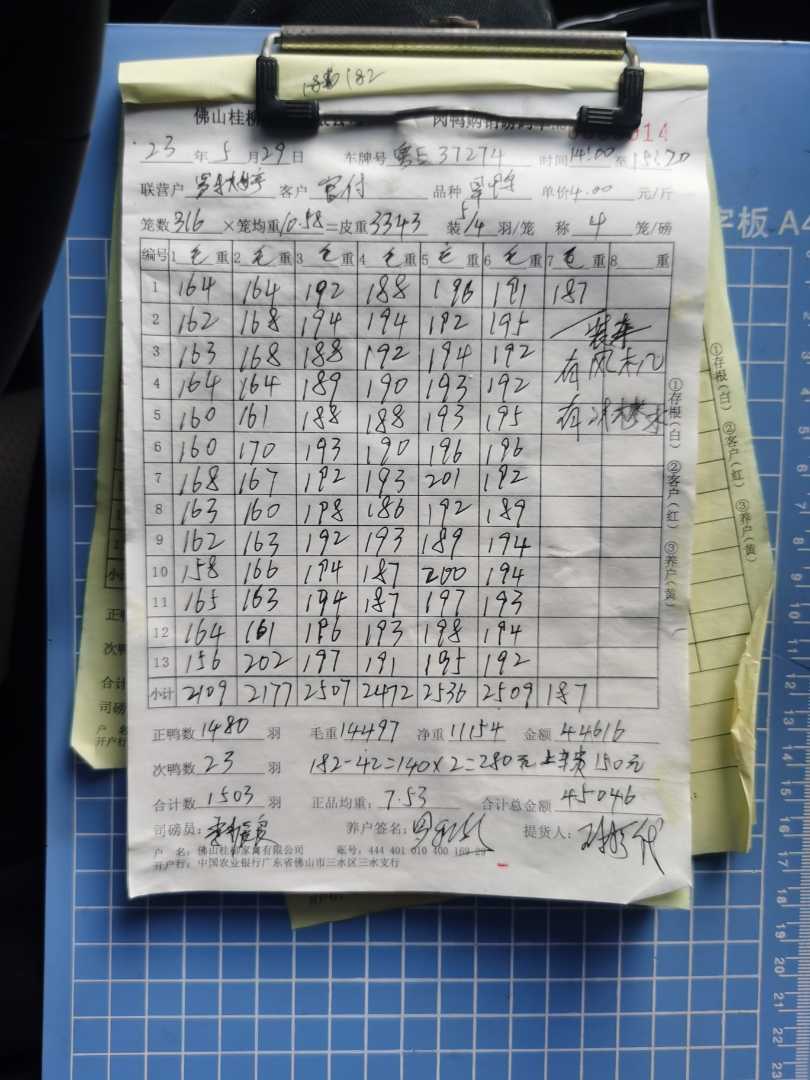 182
佛山桂柳
14
23 年 5 月 29 日 车牌号 粤E 37274 时间 14:00 至 15:20
联营户 客户 官付 品种 单价 4.00 元/斤
笼数 316 ×笼均重 10.58 =皮重 3343 装 5/4 羽/笼 称 4 笼/磅
编号 1 毛 重 2 毛 重 3 毛 重 4 毛 重 5 毛 重 6 毛 重 7 毛 重 8 重
1 164 164 192 188 196 191 187
2 162 168 194 194 192 195 装车
3 163 168 188 192 194 192 有风未几
4 164 164 189 190 193 192
5 160 161 188 188 193 195
6 160 170 193 190 196 196
7 168 167 192 193 201 192
8 163 160 198 186 192 189
9 162 163 192 193 189 194
10 158 166 194 187 200 194
11 165 163 194 187 197 193
12 164 161 196 193 198 194
13 156 202 197 191 195 192
小计 2109 2177 2507 2472 2536 2509 187
正鸭数 1480 羽 毛重 14497 净重 11154 金额 44616
次鸭数 23 羽 182-42=140×2=280元 上车费150元
合计数 1503 羽 正品均重: 7.53 合计总金额 45046
司磅员: 养户签名: 提货人:
户 名: 佛山桂柳家禽有限公司 账号: 444 401 010 400 169 29
开户行: 中国农业银行广东省佛山市三水区三水支行
①存根(白) ②客户(红) ③养户(黄)
①存根(白) ②客户(红) ③养户(黄)
字板 A4